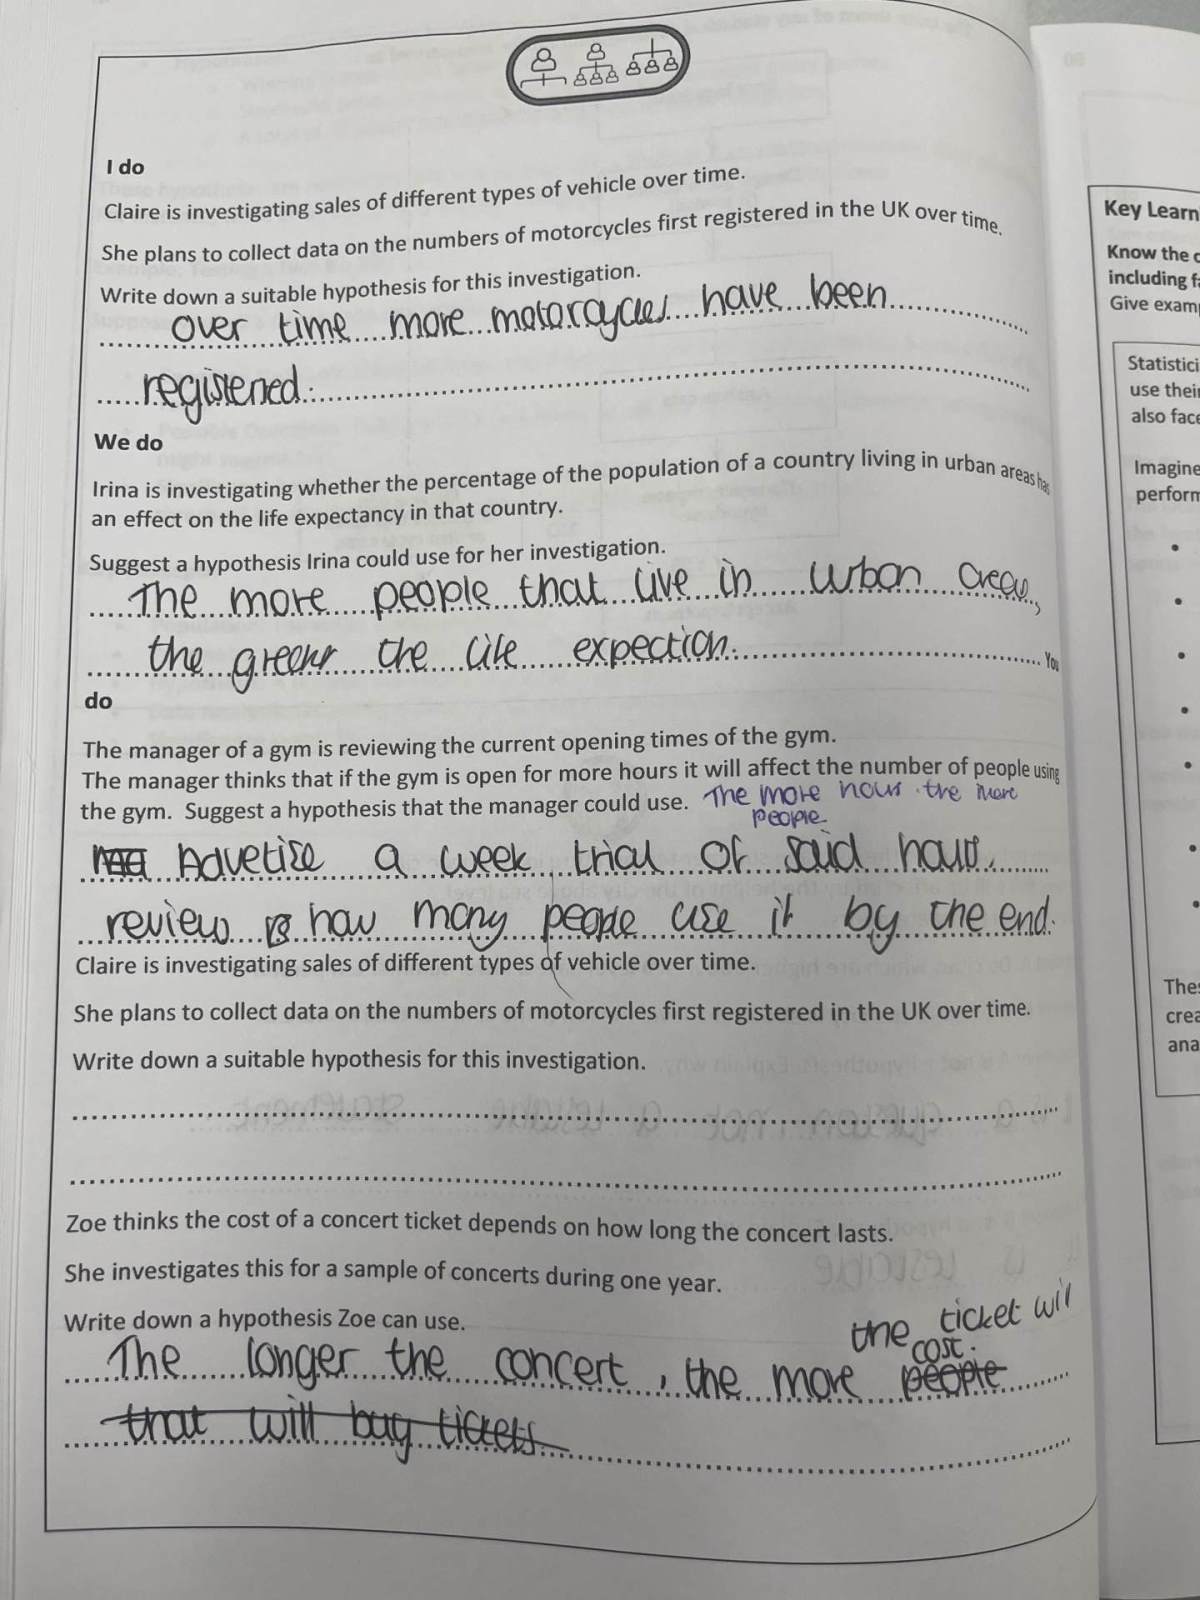 I do
Claire is investigating sales of different types of vehicle over time.
She plans to collect data on the numbers of motorcycles first registered in the UK over time.
Write down a suitable hypothesis for this investigation.
over time more motorcycles have been
registered.
We do
Irina is investigating whether the percentage of the population of a country living in urban areas has
an effect on the life expectancy in that country.
Suggest a hypothesis Irina could use for her investigation.
The more people that live in urban areas,
the the life expection.
You
do
The manager of a gym is reviewing the current opening times of the gym.
The manager thinks that if the gym is open for more hours it will affect the number of people using
the gym. Suggest a hypothesis that the manager could use. The more hours the more
people
Advetise a week trial of said hours.
review how many people use it by the end.
Claire is investigating sales of different types of vehicle over time.
She plans to collect data on the numbers of motorcycles first registered in the UK over time.
Write down a suitable hypothesis for this investigation.
Zoe thinks the cost of a concert ticket depends on how long the concert lasts.
She investigates this for a sample of concerts during one year.
Write down a hypothesis Zoe can use.
the ticket will
cost.
The longer the concert, the more people
that will buy tickets
Key Learn
Know the
including
Give exam
Statistici
use their
also face
Imagine
perform
Thes
crea
ana